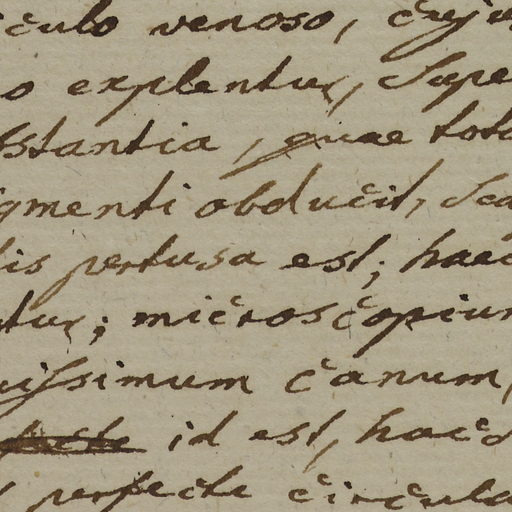 iculo venoso, cuju
o explentur, Supe
bstantia, quae tota
igmenti obducit, Sed
lis pertusa est; haec
tur; microscopium
uissimum canum,
id est, haec
perfecte circula